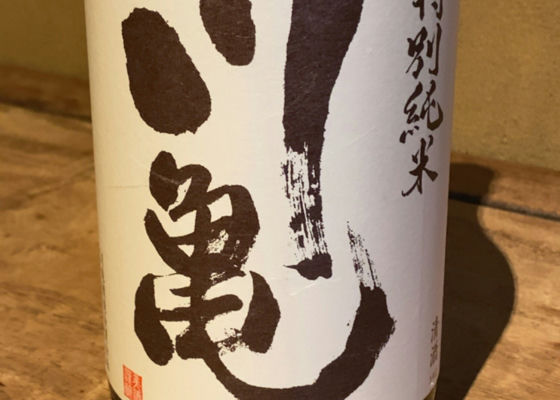 特別純米
川亀
清酒